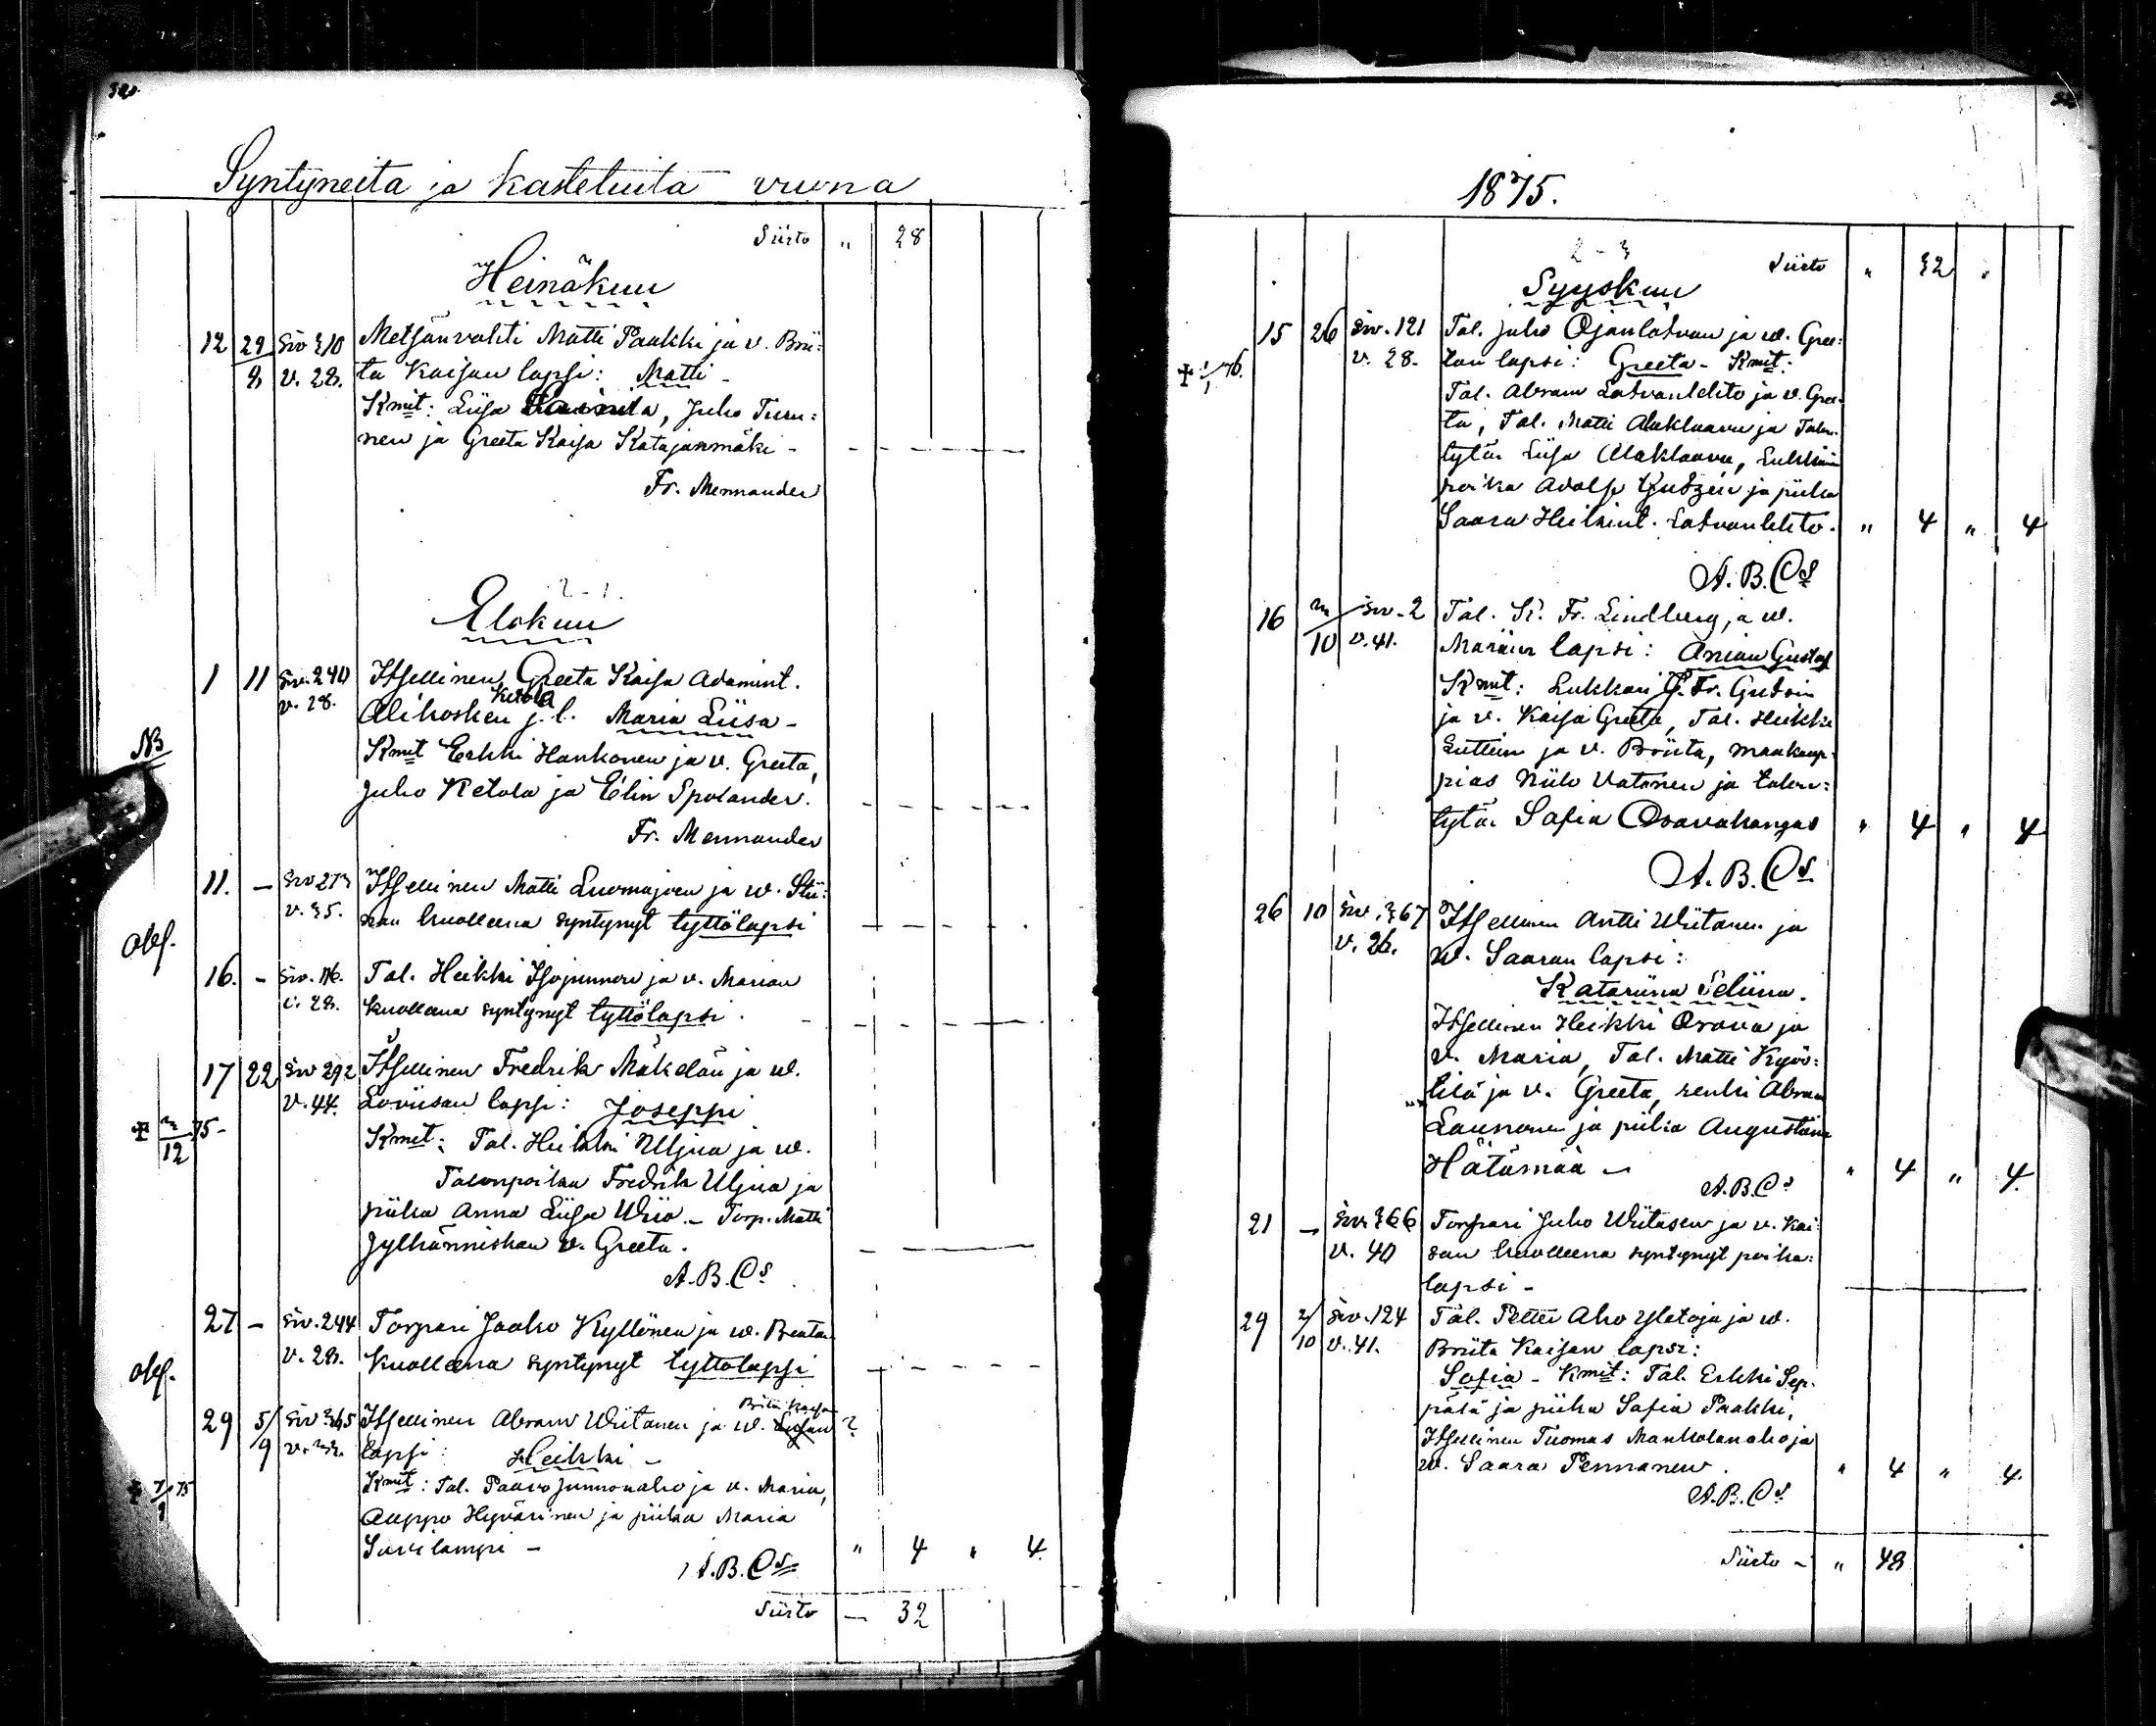 Syntyneitä ja kastetuita vuona
Siirto " 28
Heinäkuu
12 29/8 Siv 210 Metsänvahti Matti Paakki ja v. Brii:
v. 28. ta Kaisan lapsi: Matti -
Kmit: Liisa, Juho Turu:
nen ja Greeta Kaisa Katajanmäki -
Fr. Mennander
2-1.
Elokuu
1 11 Siv. 240 Itsellinen Greeta Kaisa Adamint.
Ketola
v. 28. Alikosken j. l. Maria Liisa -
NB
Kmit Erkki Hankonen ja v. Greeta,
Juho Ketola ja Elin Spolander.
Fr. Mennander
11. - Siv 273 Itsellinen Matti Luomajoen ja w. Stii:
v. 35. nan kuolleena syntynyt tyttölapsi
16. - Siv. 116. Tal. Heikki Isojunnon ja v. Marian
v. 28. kuolleena syntynyt tyttölapsi.
17 22 Siv 292 Itsellinen Fredrik Mäkelän ja w.
v. 44. Loviisan lapsi: Joseppi
12 75 - Kmit: Tal. Heikki Uljua ja w.
Talonpoika Fredrik Uljua ja
piika Anna Liisa - Torp. Matti
Jylhänniskan v. Greeta.
A. B. Cs
27 - Siv. 244 Torpari Jaako Kyllönen ja w. Beatan
v. 28. kuolleena syntynyt tyttölapsi
Briita Kaisan
29 5/9 Siv 365 Itsellinen Abram Wiitanen ja w. ?
lapsi: Heikki -
7/9 75 Kmit: Tal. Paavo Junnonaho ja v. Maria,
Auppo Hyvärinen ja piika Maria
Savilampi - " 4 " 4
A. B. Cs
Siirto - 32
1875.
2-3
Siirto " 32 "
Syyskuu
15 26 Siv. 121 Tal. Juho Ojanlatvan ja w. Gree:
1/1 76. v. 28. tan lapsi: Greeta - Kmit:
Tal. Abram Latvanlehto ja v. Gree:
ta, Tal. Matti Alaklaavu ja Talon.
tytär Liisa Alaklaavu, Lukkarin
poika Adolf Gudzen ja piika
Saara Heikint. Latvanlehto. " 4 " 4
A. B. Cs
16 10 Siv. 2 Tal. K. Fr. Lindberg, ja w.
v. 41. Mariian lapsi: Anian Gustaf
Kmit: Lukkari G. Fr. Gudsin
ja v. Kaisa Greeta, Tal. Heikki
Luttinen ja v. Briita, maakaup-
pias Niilo Vatanen ja talon:
tytär Sofia Oravakangas " 4 " 4
A. B. Cs
26 10 Siv. 367 Itsellinen Antti Wiitanen ja
v. 26. w. Saaran lapsi:
Katariina Seliina.
Itsellinen Heikki Orava ja
v. Maria, Tal. Matti Kyös:
tilä ja v. Greeta, renki Abram
Launonen ja piika Augustiina
Hätämää - " 4 " 4.
A. B. Cs
21 - Siv 366 Torpari Juho Wiitasen ja v. Kai:
v. 40 san kuolleena syntynyt poika:
lapsi -
29 2/10 Siv. 124 Tal. Petter Aho Yletoja ja w.
v. 41. Briita Kaisan lapsi:
Sofia - Kmit: Tal. Erkki Sep-
pälä ja piika Sofia Paakki,
Itsellinen Tuomas Mankolanaho ja
w. Saara Pennanen. " 4 " 4.
A. B. Cs
Siirto - " 48